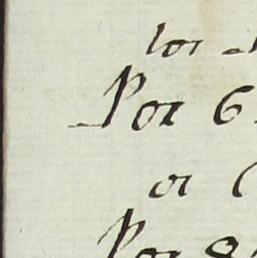 los
Por 6
or
Por 8